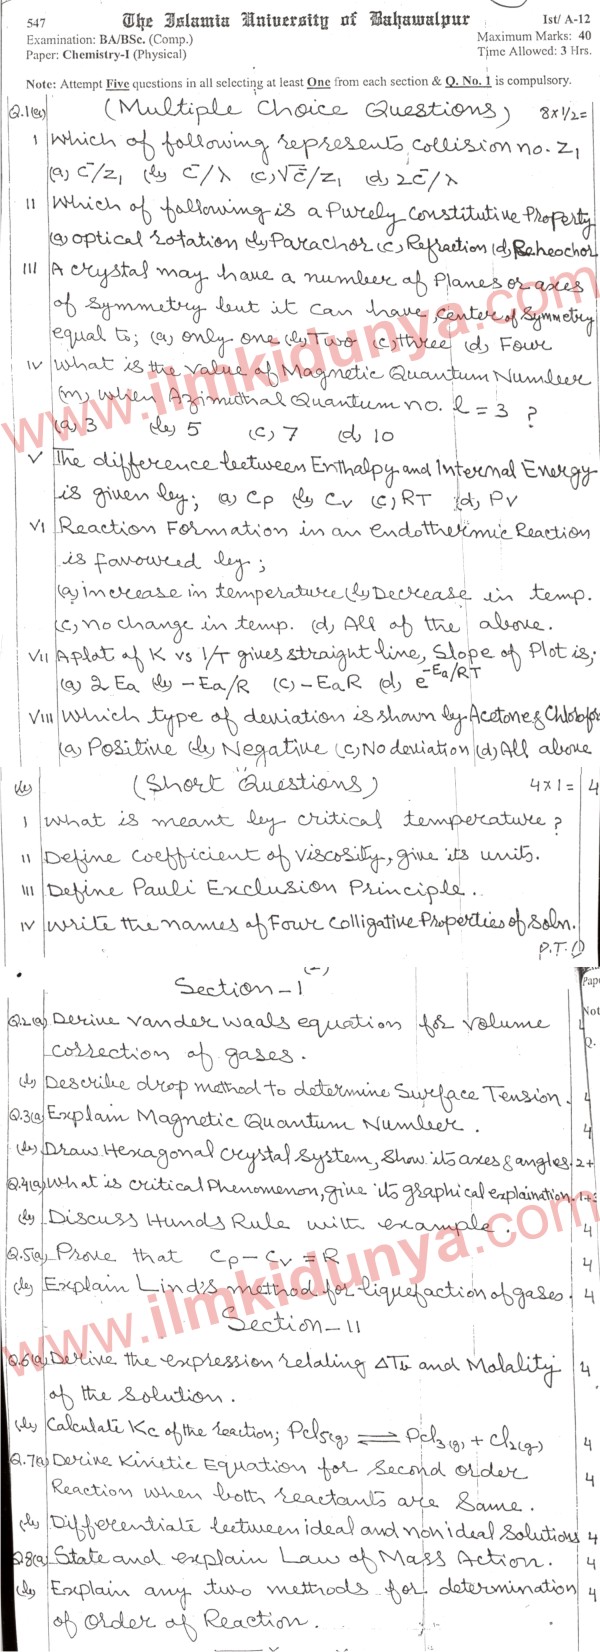 547 The Islamia University of Bahawalpur Ist/ A-12
Examination: BA/BSc. (Comp.) Maximum Marks: 40
Paper: Chemistry-I (Physical) Time Allowed: 3 Hrs.
Note: Attempt Five questions in all selecting at least One from each section & Q. No. 1 is compulsory.
Q.1(a) (Multiple Choice Questions) 8x1/2=
I Which of following represents collision no. Z1
(a) C̄/Z1 (b) C̄/λ (c) √C̄/Z1 (d) 2C̄/λ
II Which of following is a Purely Constitutive Property
(a) optical rotation (b) Parachor (c) Refraction (d) Reheochor
III A crystal may have a number of Planes or axes
of symmetry but it can have center of symmetry
equal to; (a) only one (b) Two (c) three (d) Four
IV What is the value of Magnetic Quantum Number
(m) when Azimuthal Quantum no. l = 3 ?
(a) 3 (b) 5 (c) 7 (d) 10
V The difference between Enthalpy and Internal Energy
is given by; (a) Cp (b) Cv (c) RT (d) PV
VI Reaction Formation in an endothermic Reaction
is favoured by;
(a) increase in temperature (b) Decrease in temp.
(c) no change in temp. (d) All of the above.
VII A plot of K vs 1/T gives straight line, Slope of Plot is;
(a) 2 Ea (b) -Ea/R (c) -EaR (d) e^-Ea/RT
VIII Which type of deviation is shown by Acetone & Chlorofor
(a) Positive (b) Negative (c) No deviation (d) All above
(b) (Short Questions) 4x1= 4
I What is meant by critical temperature?
II Define coefficient of viscosity, give its units.
III Define Pauli Exclusion Principle.
IV Write the names of Four Colligative Properties of Soln.
P.T.O
Section-I
Q.2(a) Derive vander waals equation for volume
correction of gases.
(b) Describe drop method to determine Surface Tension. 4
Q.3(a) Explain Magnetic Quantum Number. 4
(b) Draw Hexagonal Crystal System, Show its axes & angles. 2+
Q.4(a) What is critical Phenomenon, give its graphical explaination. 1+3
(b) Discuss Hunds Rule with example. 4
Q.5(a) Prove that Cp-Cv = R 4
(b) Explain Lind's method for liquefaction of gases. 4
Section-II
Q.6(a) Derive the expression relating ΔTb and Molality 4
of the solution.
(b) Calculate Kc of the reaction; PCl5(g) ⇌ PCl3(g) + Cl2(g) 4
Q.7(a) Derive Kinetic Equation for Second order 4
Reaction when both reactants are Same.
(b) Differentiate between ideal and non ideal Solutions 4
Q8(a) State and explain Law of Mass Action. 4
(b) Explain any two methods for determination 4
of Order of Reaction.
Pap
Not
Q.
www.ilmkidunya.com
www.ilmkidunya.com